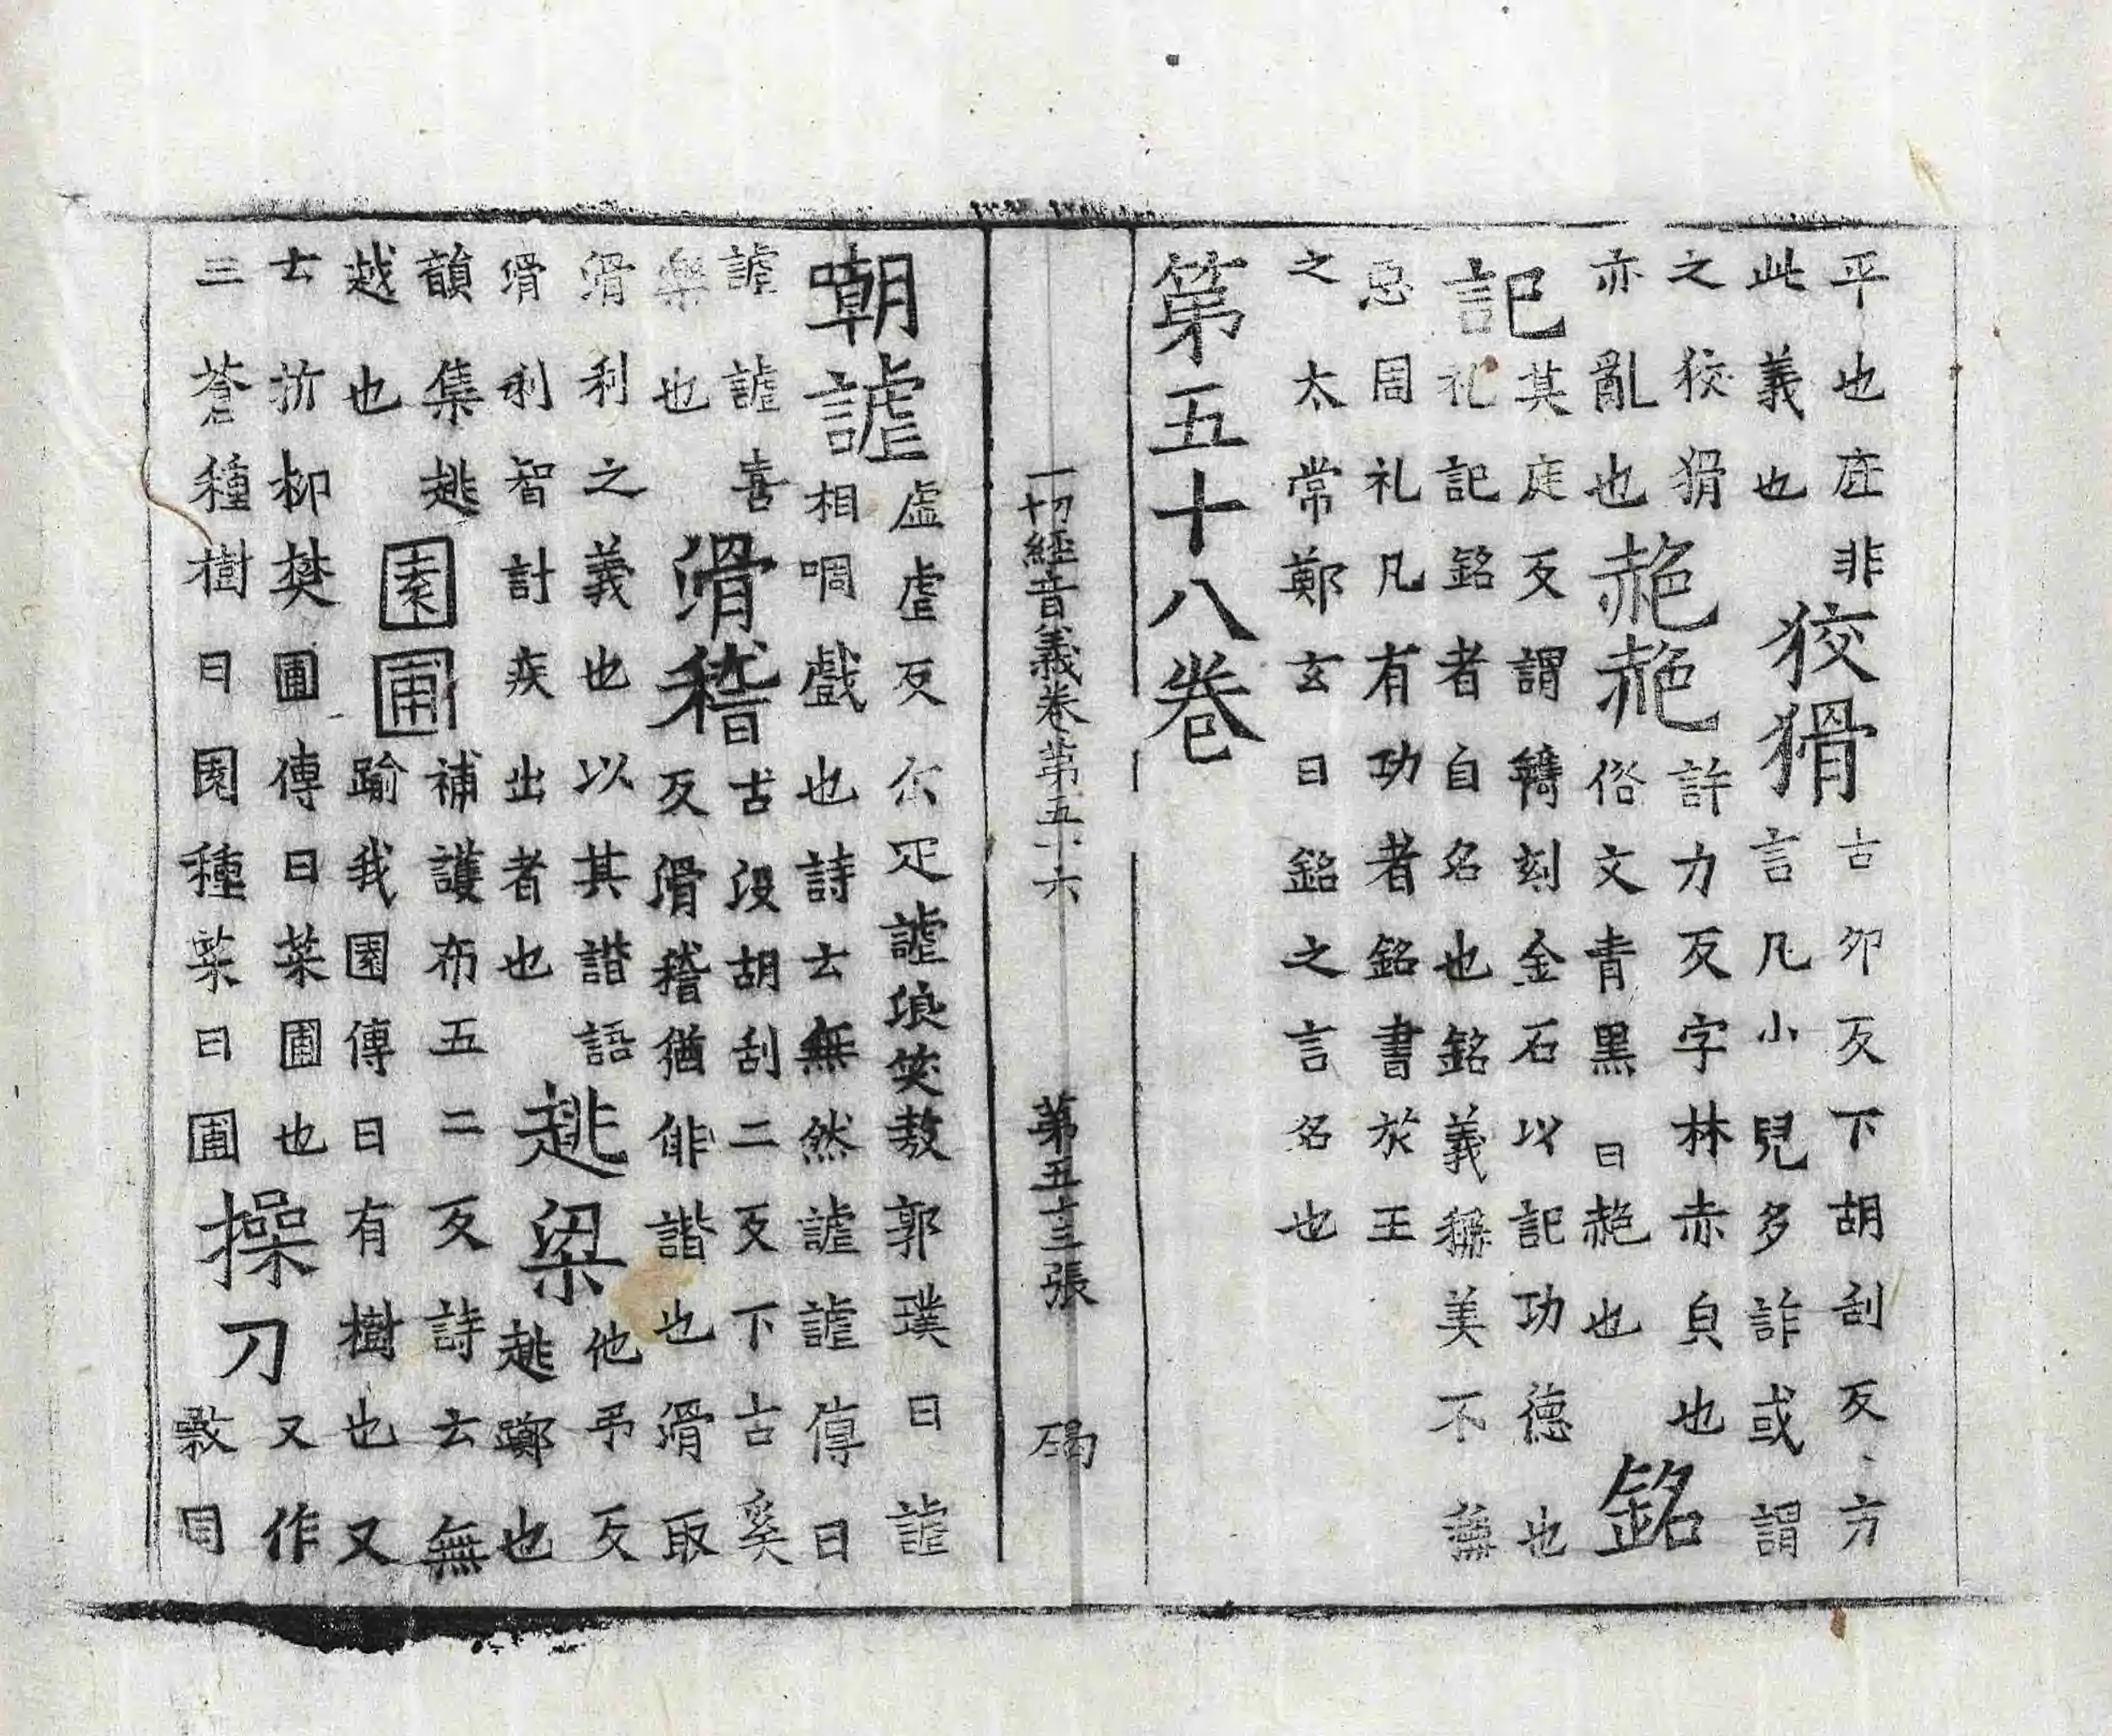 平也㽵非此義也狡猾古卯反下胡刮反方言凡小兒多詐或謂
之狡猾亦亂也赩赩許力反字林赤皃也俗文青黑曰赩也銘
記其庭反謂鐫刻金石以記功德也礼記銘者自名也銘義稱美不稱
惡周礼凡有功者銘書於王之太常鄭玄曰銘之言名也
第五十八卷
一切經音義卷第五十六 第五十三張 碣
嘲謔虛虐反尒疋謔浪笑敖郭璞曰謔相啁戲也詩云無然謔謔傳曰
謔謔喜樂也滑稽古沒胡刮二反下古奚反滑稽猶俳諧也滑取
滑利之義也以其諧語滑利智計疾出者也趒梁他弔反趒躑也
韻集趒越也園圃補護布五二反詩云無踰我園傳曰有樹也又
云折柳樊圃傳曰菜圃也三蒼種樹曰園種菜曰圃操刀又作同